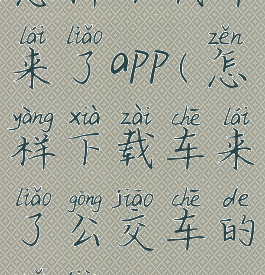 lái liǎo zěn
来了app(怎
yàng xià zài chē lái
样下载车来
liǎo gōng jiāo chē de
了公交车的